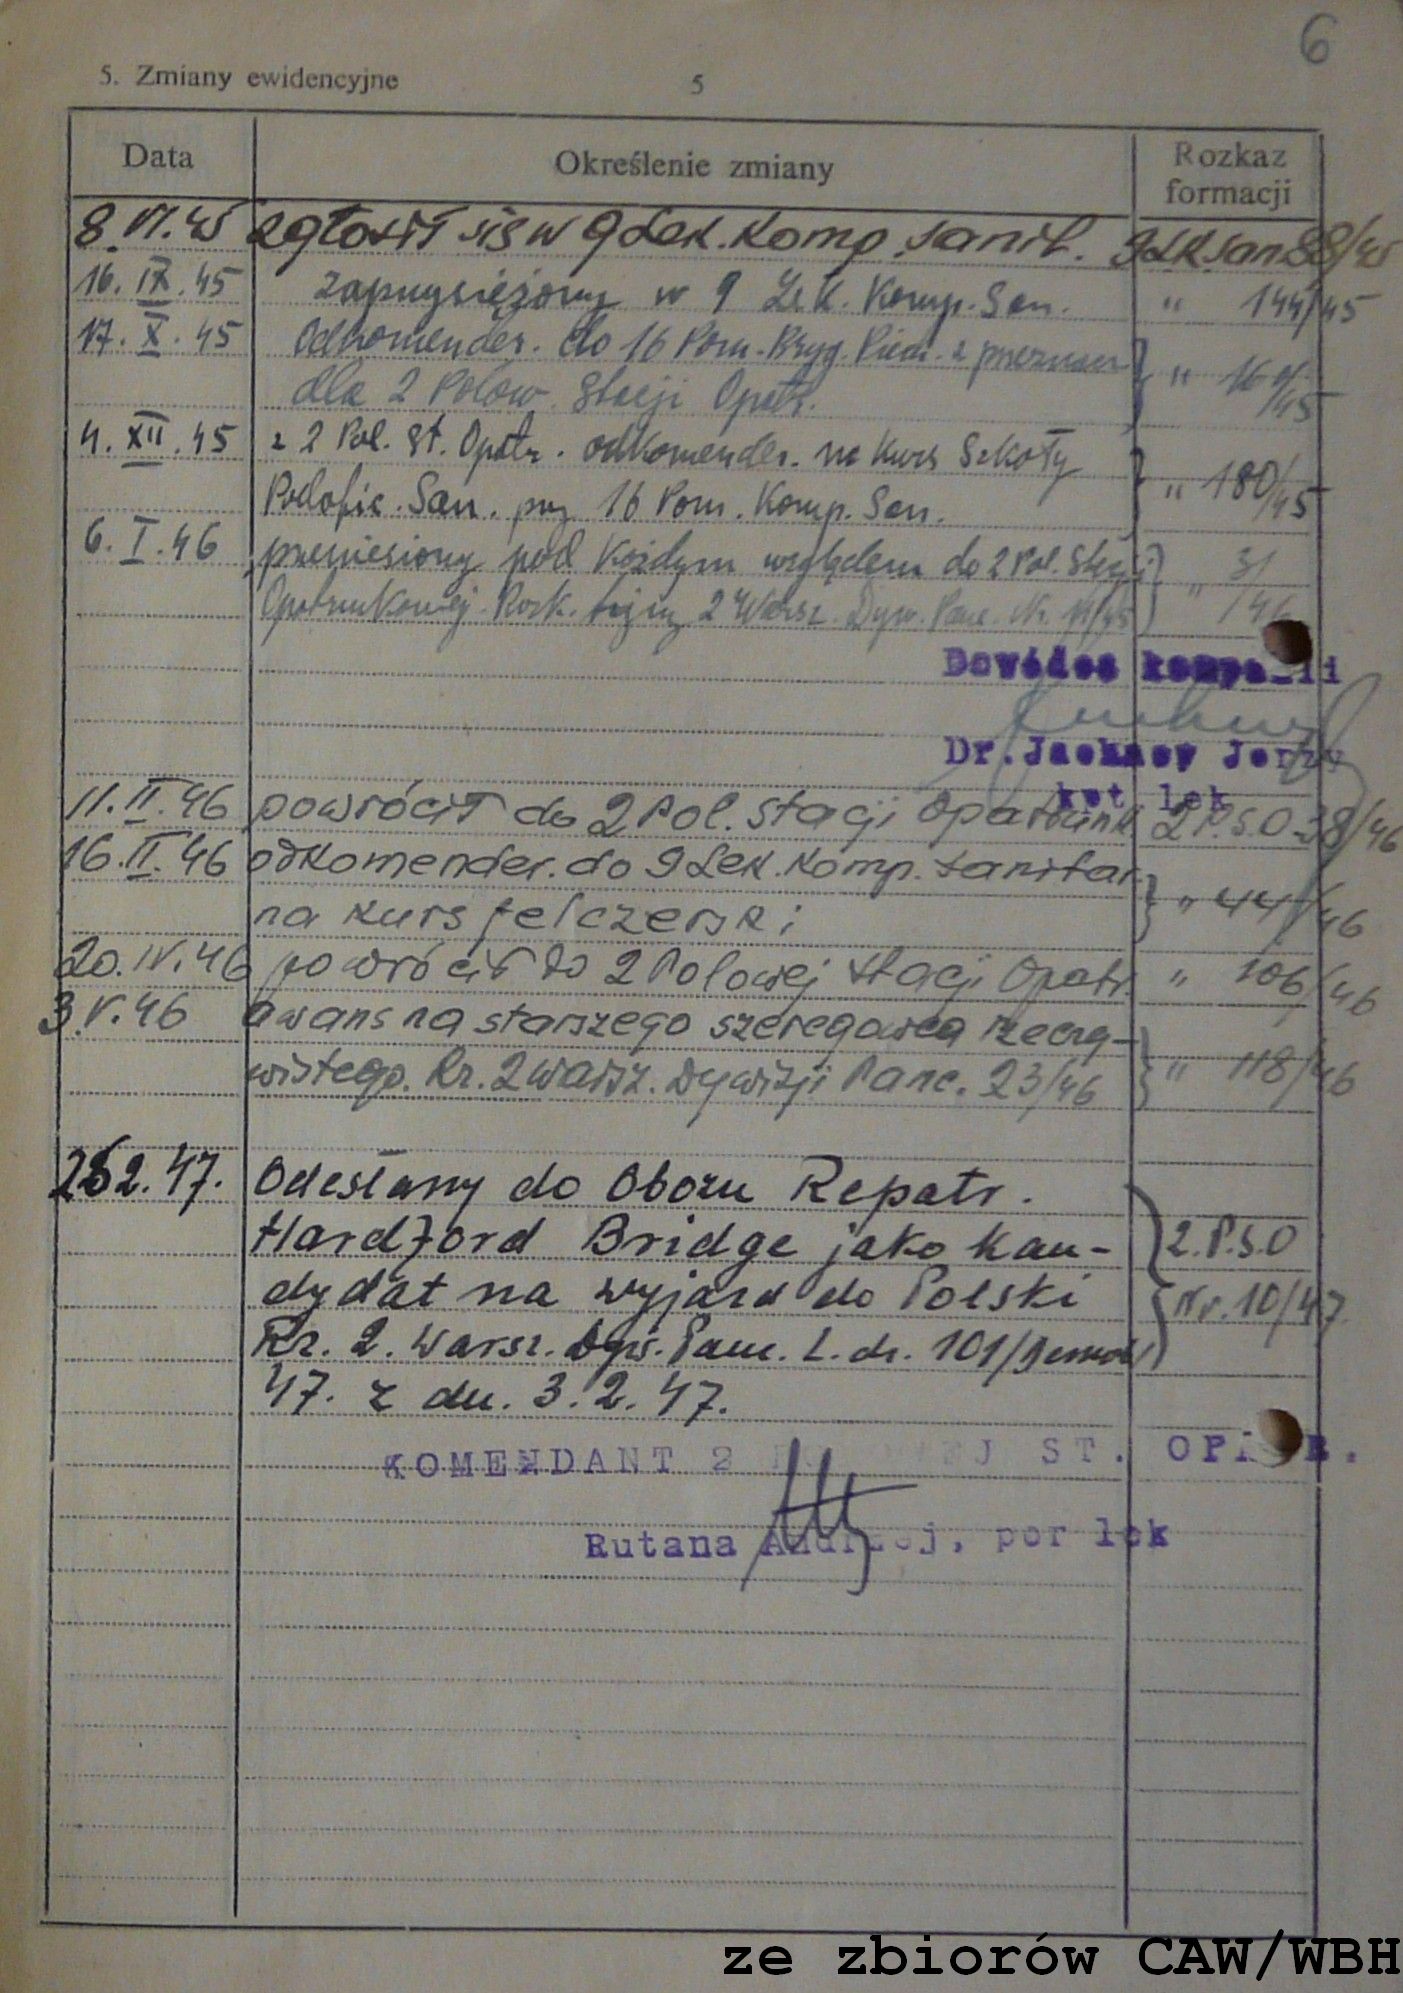 6
5. Zmiany ewidencyjne 5
Data Określenie zmiany Rozkaz formacji
8. VI. 45 zgłosił się w 9 Lek. Komp. sanit. 9 LK san 88/45
16. IX. 45 zaprzysiężony w 9 Lek. Komp. San. " 144/45
17. X. 45 Odkomender. do 16 Pom. Bryg. Piech. z przeznacz
dla 2 Polow. Stacji Opatr. "
4. XII. 45 z 2 Pol. St. Opatr. odkomender. na Kurs Szkoły
Podofic. San. przy 16 Pom. Komp. San. " 180/45
6. I. 46 przeniesiony pod każdym względem do 2 Pol. Stacji
Opatrunkowej. Rozk. 2 Warsz. Dyw. Panc. Nr. " 3/46
Dowódca kompanii
Dr. Jachacy Jerzy
kpt lek
11. II. 46 powrócił do 2 Pol. Stacji Opatrunk 2 P.S.O 38/46
16. II. 46 odkomender. do 9 Lek. Komp. sanitar.
na kurs felczerski " 44/46
20. IV. 46 powrócił do 2 Polowej Stacji Opatr. " 106/46
3. V. 46 awans na starszego szeregowca rzeczy-
wistego. Rr. 2 Warsz. Dywizji Panc. 23/46 " 118/46
2.47. Odesłany do Obozu Repatr.
Hardford Bridge jako kan- 2.P.S.O
dydat na wyjazd do Polski Nr. 10/47.
Rr. 2. Warsz. Dyw. Panc. L. dz. 101/
47. z dn. 3.2.47.
KOMENDANT 2 POLOWEJ ST. OPATR.
Rutana Andrzej, por lek
ze zbiorów CAW/WBH